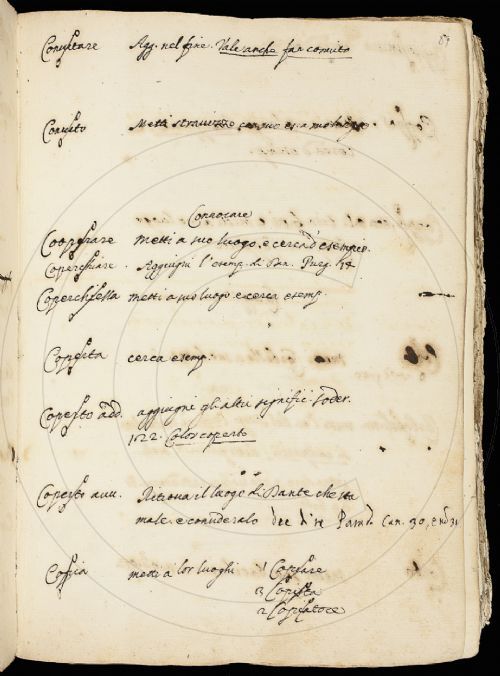 87
Convitare Agg. nel fine. Vale anche far convito
Convito Metti stravizzo
Convocare
Cooperare metti a suo luogo, e cerca d'esempio.
Coperchiare. Aggiugni l'esemp. di Dan. Purg.
Coperchiella metti a suo luogo e cerca esemp.
Coperta cerca esemp.
Coperto add. aggiugni gli altri signific. Soder.
1622. Color coperto
Coperto avv. Ritrova il luogo di Dante che sta
male. e consideralo dee dire Parad. Can. 30. e non 31
Coppia metti a lor luoghi 1 Copiare
3 Copista
2 Copiatore